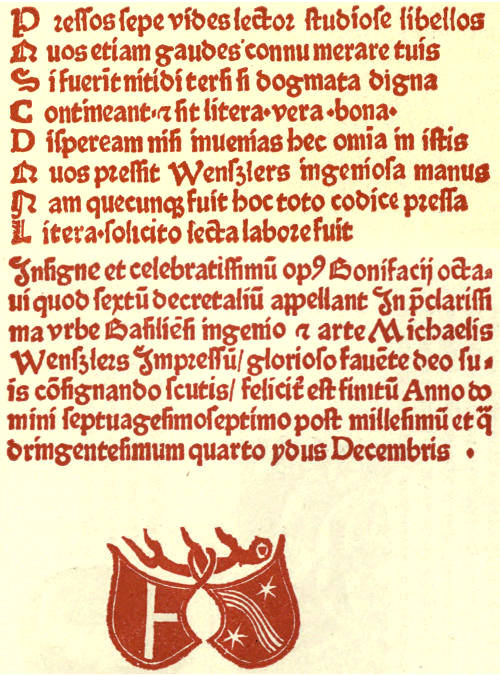 P ressos sepe vides lector studiose libellos
Q uos etiam gaudes connu merare tuis
S i fuerīt nitidi tersi si dogmata digna
C ontineant·⁊ sit litera·vera·bona·
D ispeream nisi inuenias hec om̄ia in istis
Q uos pressit Wenszlers ingeniosa manus
N am quecunqꝫ fuit hoc toto codice pressa
L itera·solicito lecta labore fuit
Insigne et celebratissimū opꝰ Bonifacij octa⸗
ui quod sextū decretaliū appellant In p̄clarissi
ma vrbe Basiliēsi ingenio ⁊ arte Michaelis
Wenszlers Impressū/ glorioso fauēte deo su⸗
is cōsignando scutis/ felicit̄ est finitū Anno do
mini septuagesimoseptimo post millesimū et q̄
dringentesimum quarto ydus Decembris ·